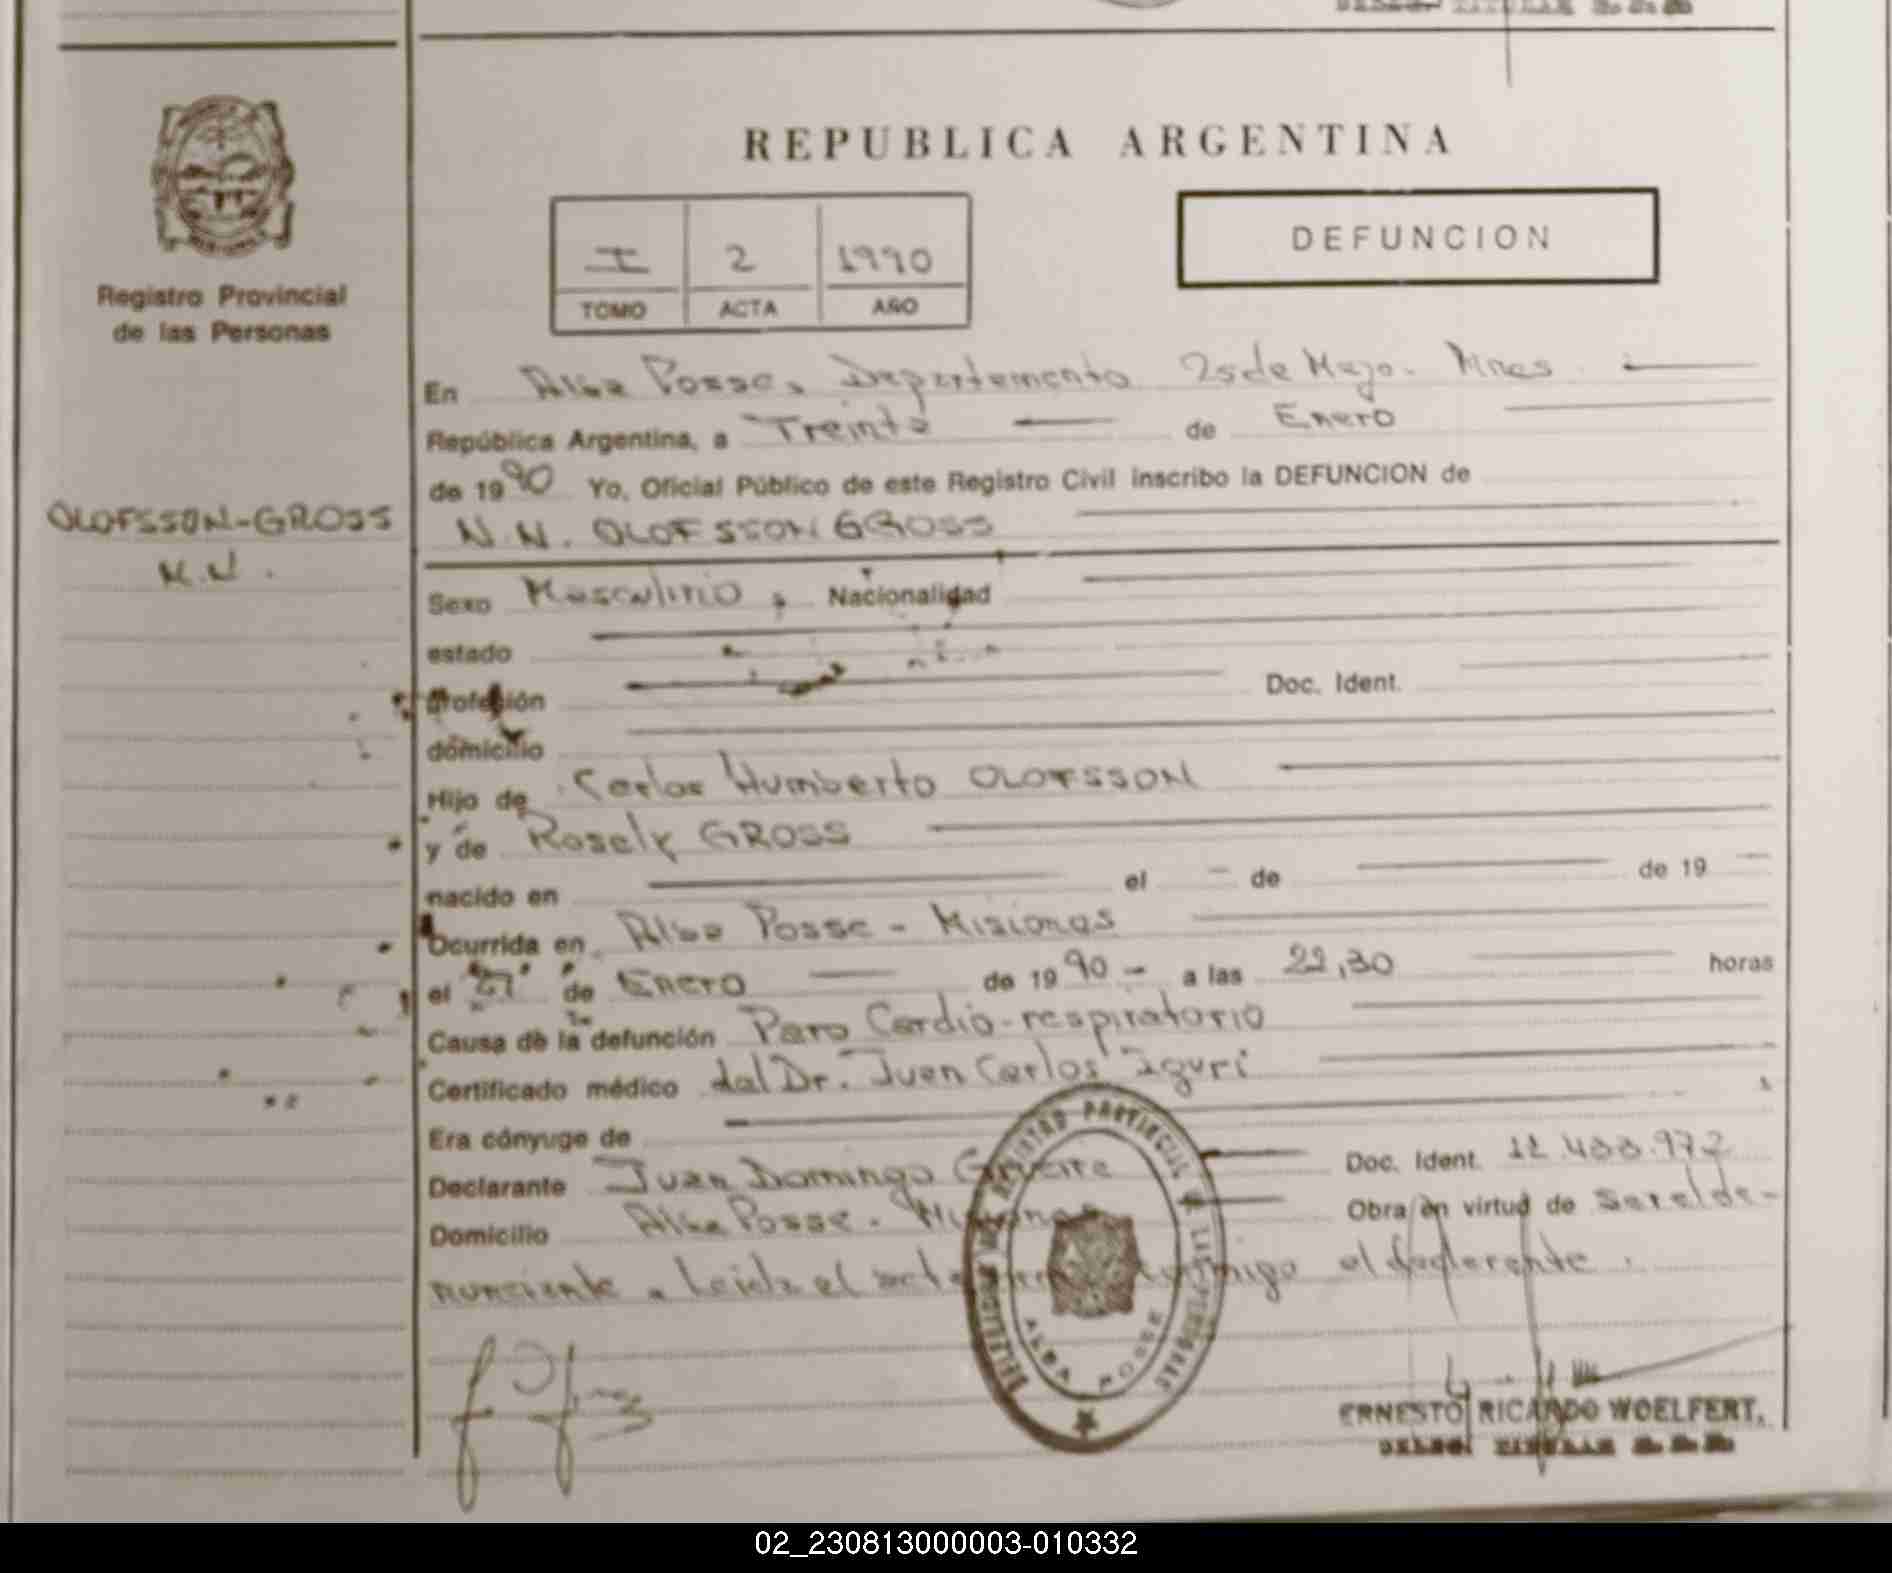 REPUBLICA ARGENTINA
I 2 1990
TOMO ACTA AÑO
DEFUNCION
Registro Provincial
de las Personas
OLOFSSON-GROSS
N.N.
En Alba Posse, Departamento 25 de Mayo. Mnes
República Argentina, a Treinta de Enero
de 1990 Yo, Oficial Público de este Registro Civil inscribo la DEFUNCION de
N.N. OLOFSSON GROSS
Sexo Masculino, Nacionalidad
estado
profesión Doc. Ident.
domicilio
Hijo de Carlos Humberto OLOFSSON
y de Rosely GROSS
nacido en el - de de 19
Ocurrida en Alba Posse - Misiones
el 27 de Enero de 1990 - a las 22,30 horas
Causa de la defunción Paro Cardio-respiratorio
Certificado médico del Dr. Juan Carlos
Era cónyuge de
Declarante Juan Domingo Doc. Ident.
Domicilio Alba Posse - Misiones Obra en virtud de Ser el de-
nunciante. Leida el acta conmigo el declarante.
REGISTRO PROVINCIAL DE LAS PERSONAS
ALBA POSSE
ERNESTO RICARDO WOELFERT
02_230813000003-010332